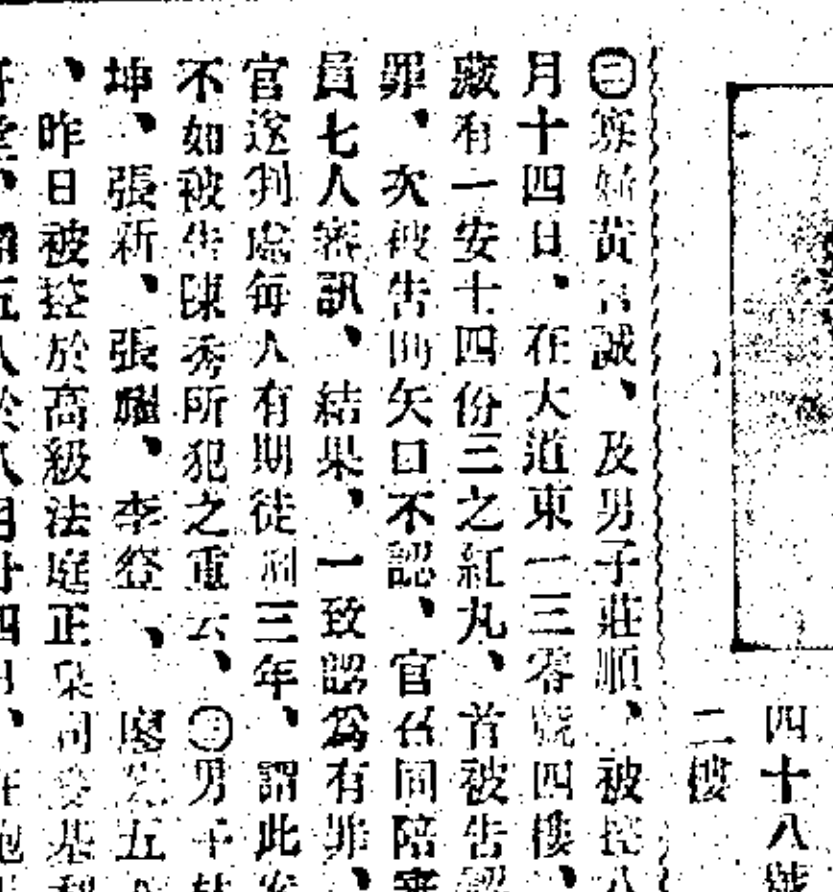 四十八號
二樓
㊁寡婦黃言誠、及男子莊順、被控八
月十四日、在大道東一三零號四樓、
藏有一安士四份三之紅丸、首被告認
罪、次被告則矢口不認、官召同陪審
員七人審訊、結果、一致認為有罪、
官遂判處每人有期徒刑三年、謂此案
不如被告陳秀所犯之重云、㊂男子
坤、張新、張耀、李登、廖五
、昨日被控於高級法庭正泉司
四